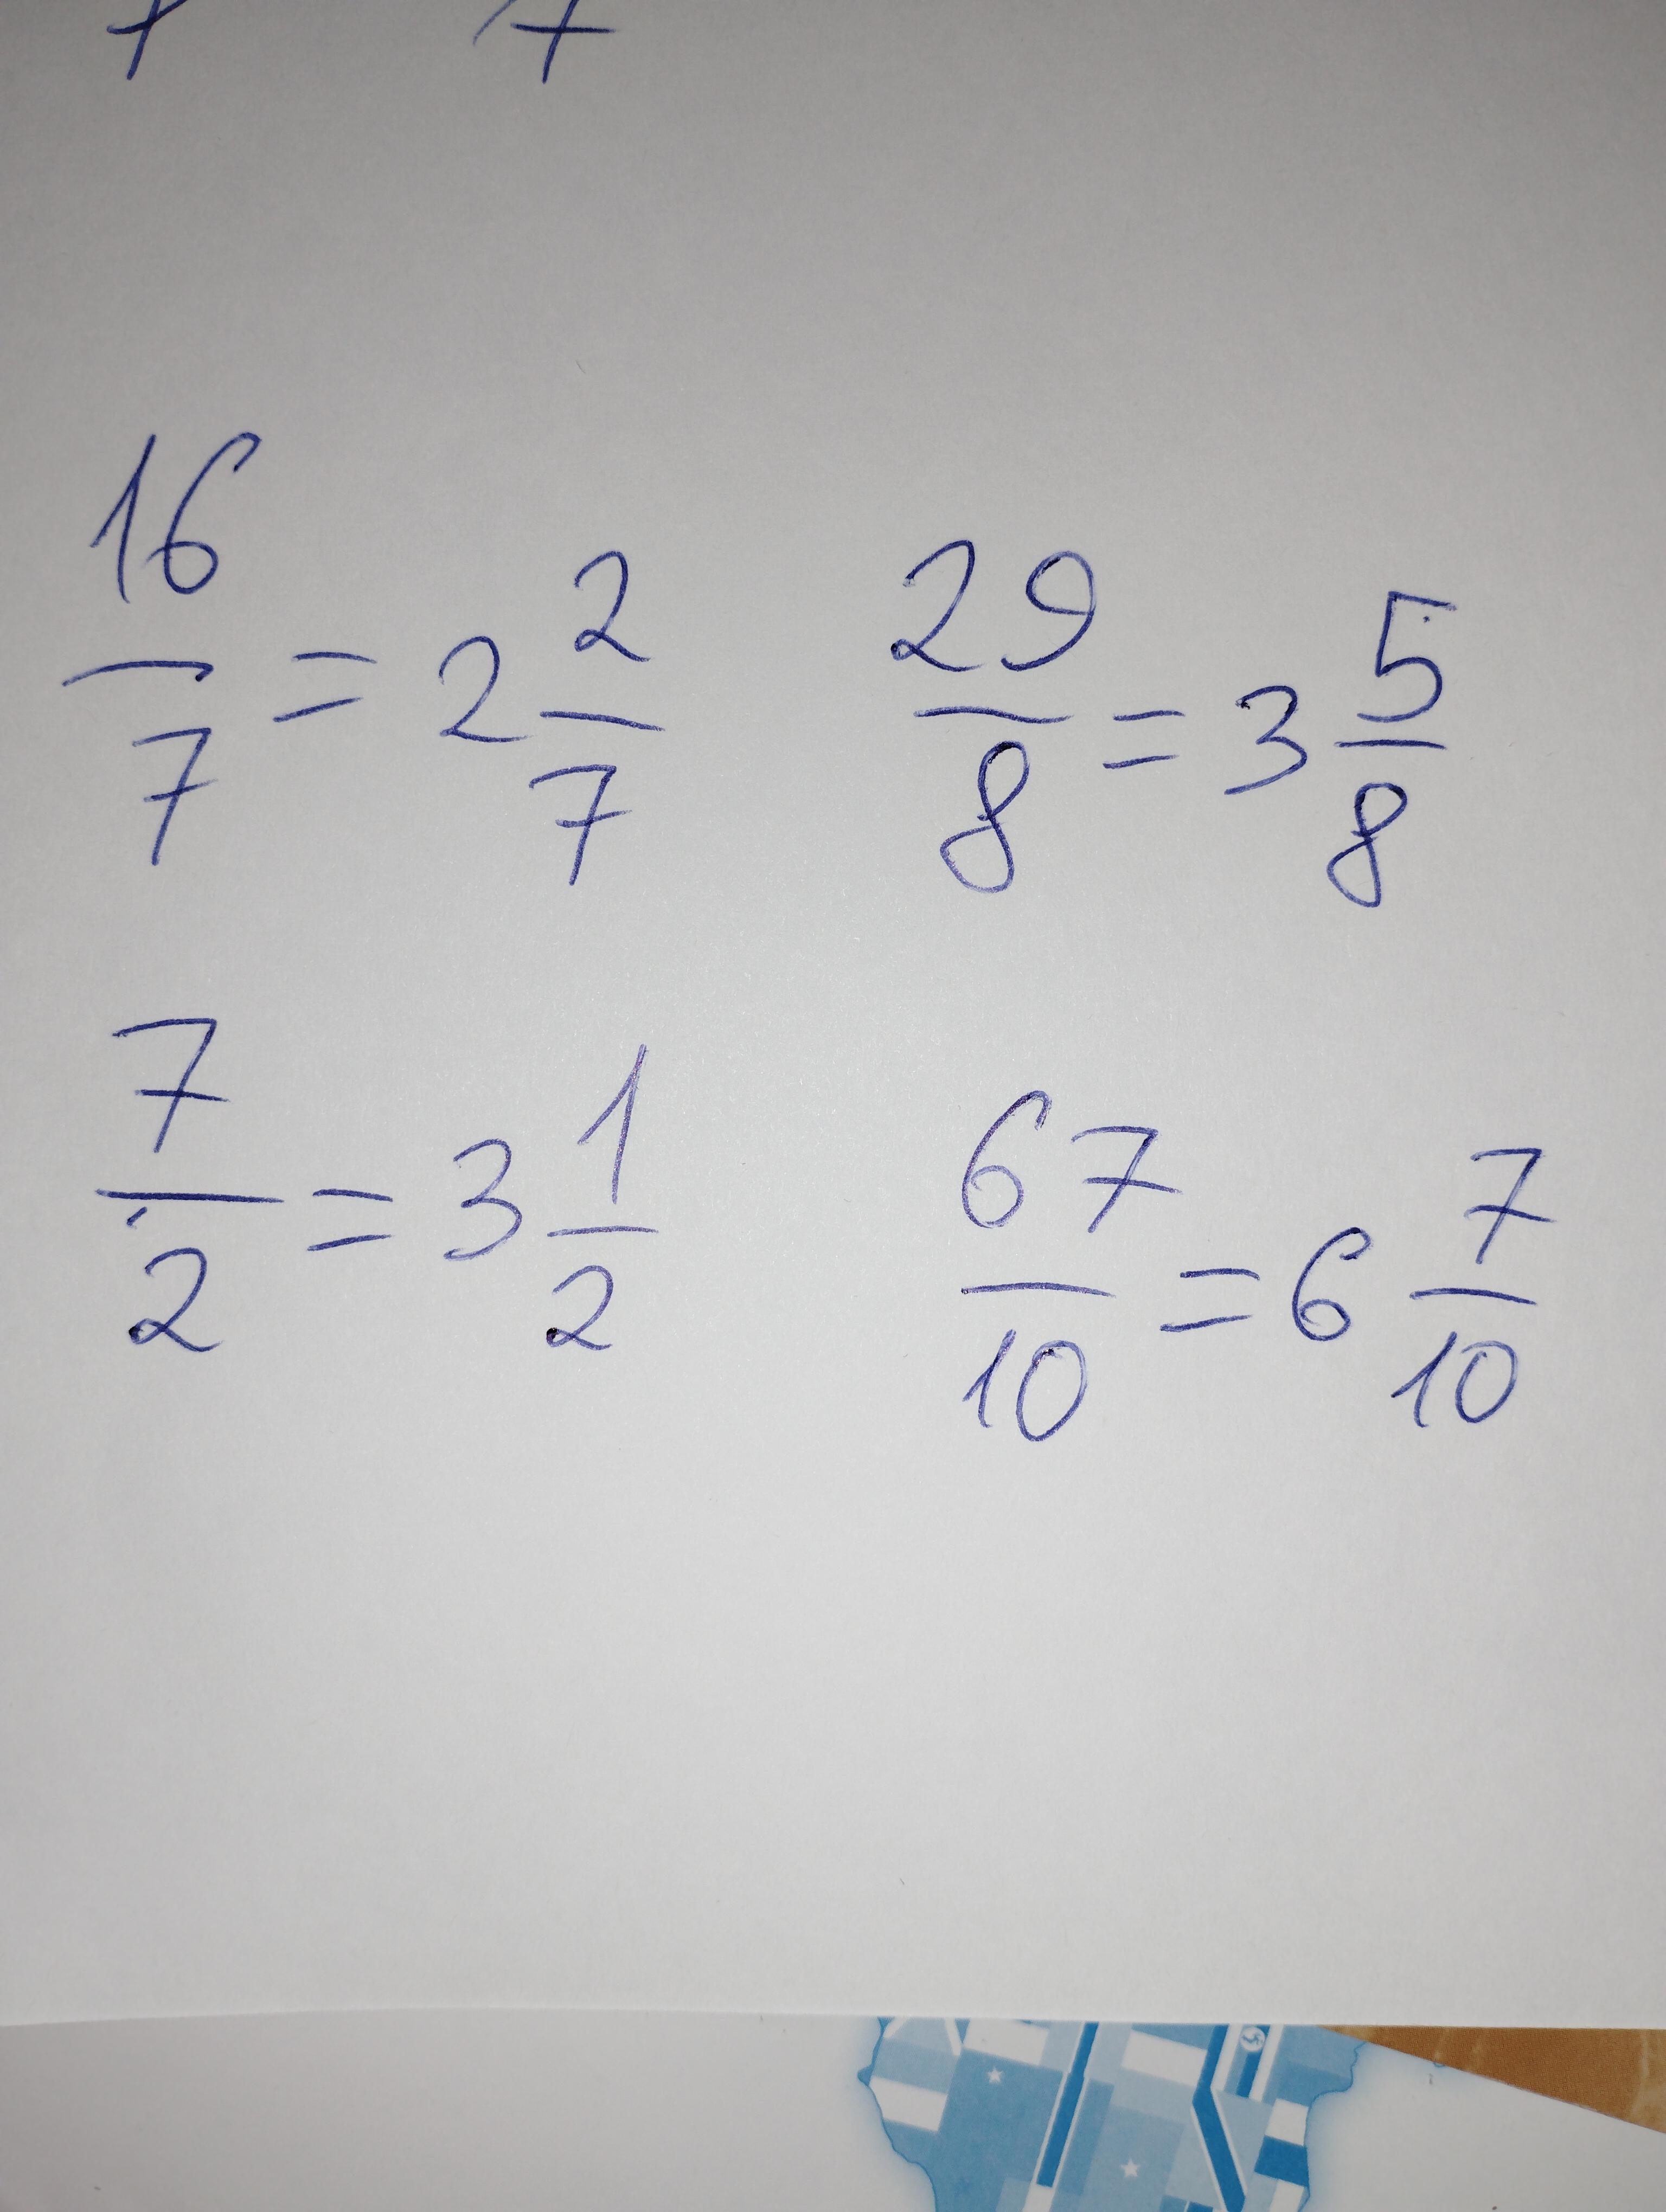 16/7 = 2 2/7    29/8 = 3 5/8
7/2 = 3 1/2    67/10 = 6 7/10